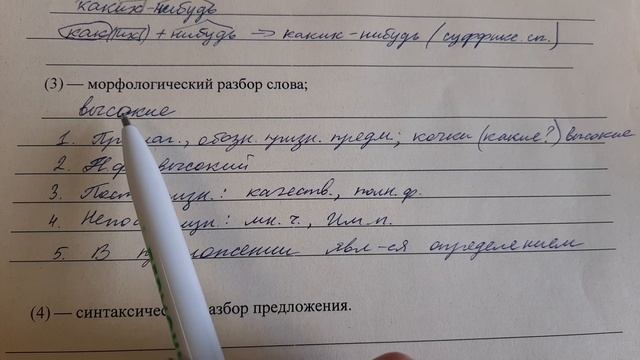 каких-нибудь
как их + нибудь → каких-нибудь (суффикс. сп.)
(3) — морфологический разбор слова;
высокие
1. обозн. призн. предм; кочки (какие?) высокие
2. Н.ф. высокий
3. качеств., полн. ф.
4. мн. ч., Им. п.
5. В явл-ся определением
(4) — разбор предложения.